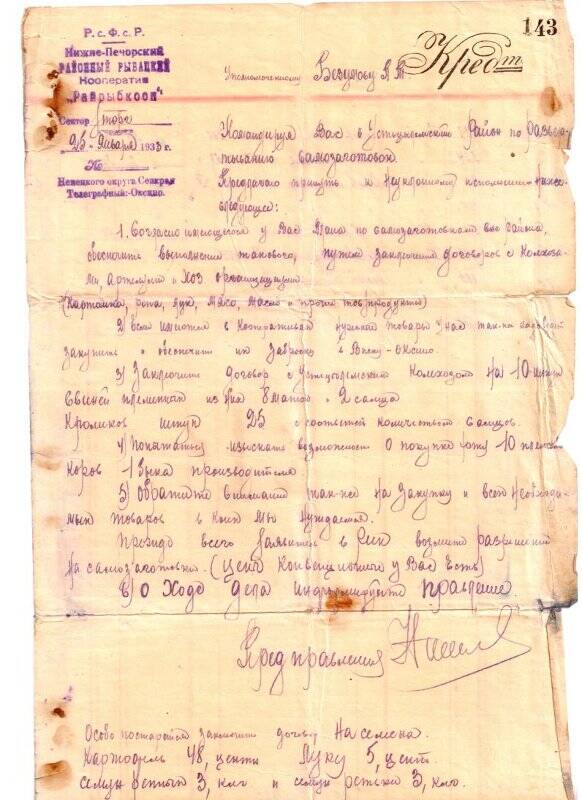 143
Р.с.Ф.с.Р.
Нижне-Печорский
РАЙОННЫЙ РЫБАЦКИЙ
Кооператив
"Райрыбкооп"
Сектор
25 Января 1933 г.
№
Ненецкого округа Севкрая
Телеграфный-Оксино.
Уполномоченному
Кредит
Командируя Вас в Устцилемский Район по развер-
тыванию самозаготовок.
Предлагаю принять к неуклонному исполнению нижес-
ледующее:
1. Согласно имеющегося у Вас Плана по самозаготовкам вне района,
обеспечить выполнение такового, путем заключения договоров с Колхоза-
ми, артелями и Хоз. организациями
(Картошка, репа, лук, мясо, масло и прочие тов. продукты)
2) в нужные товары у нас так-же
закупить и обеспечить их заброску в Оксино
3) Заключить договор с Устцилемским Колхозом на 10 штук
свиней племенных из них 8 маток и 2 самца
Кроликов штук 25 с соответств количеством самцов.
4) Попытаться изыскать возможность о покупке 10 племен
коров 1 быка производителя
5) Обратите внимание так-же на закупку и всех необходи-
мых товаров в коих мы нуждаемся.
Прежде всего явитесь в Рик возьмите разрешение
на самозаготовки. (Цены Конвенционные у Вас есть)
6) О ходе дела информируйте правление
Пред правления
Особо постарайся заключить договор на семена.
Картофель 48, центн Луку 5, цент.
семян репных 3, кло и семян 3, кло.